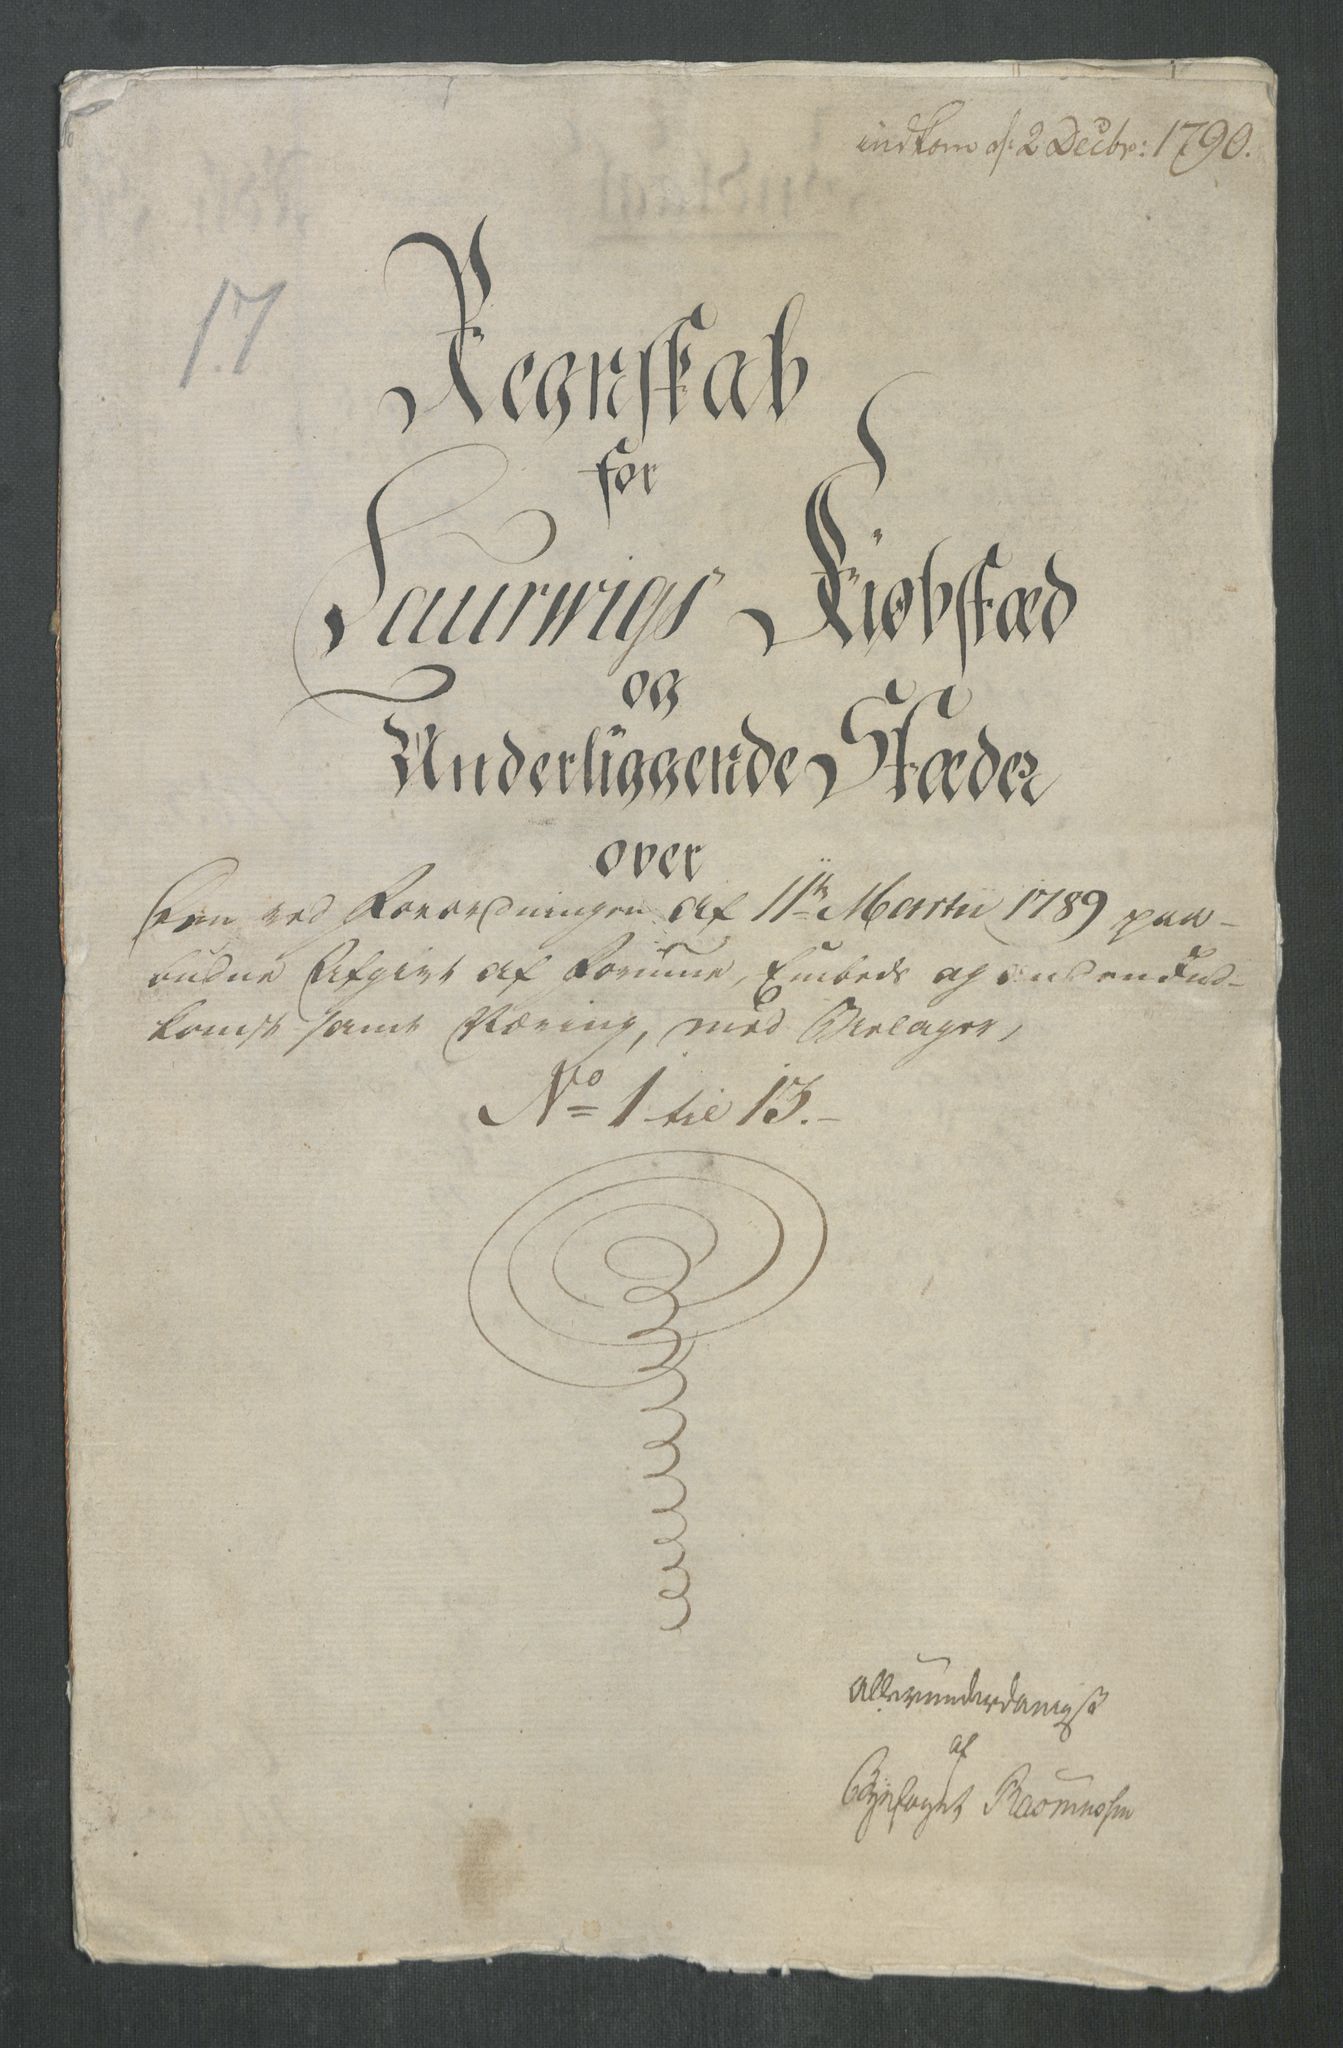 indkom d: 2 Decbr: 1790.
17
Regnskab
for
Laurwigs Kiøbstæd
og
Underliggende Stæder
over
Den ved Forordningen af 11te Martii 1789 paa-
budne Afgivt af Formue, Embeds og anden Ind-
komst samt Næring, med Bielager,
No 1 til 13.
Allerunderdanigst
af
Byefoget Rasmussen